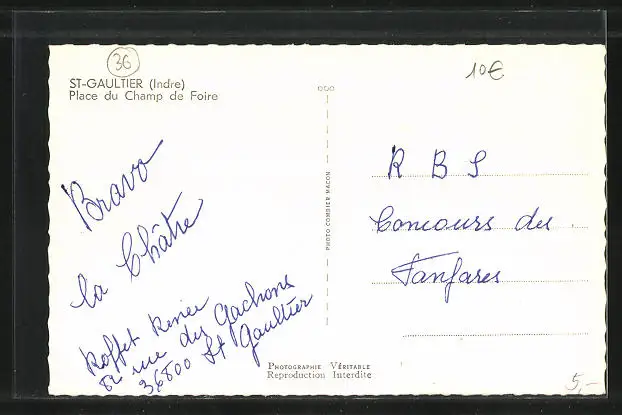 36
ST-GAULTIER (Indre)
Place du Champ de Foire
10€
Bravo
la Châtre
Roffet Renée
rue des Gachons
36800 St Gaultier
PHOTO COMBIER MACON
R B S
Concours des
Fanfares
PHOTOGRAPHIE VÉRITABLE
Reproduction Interdite
5,-